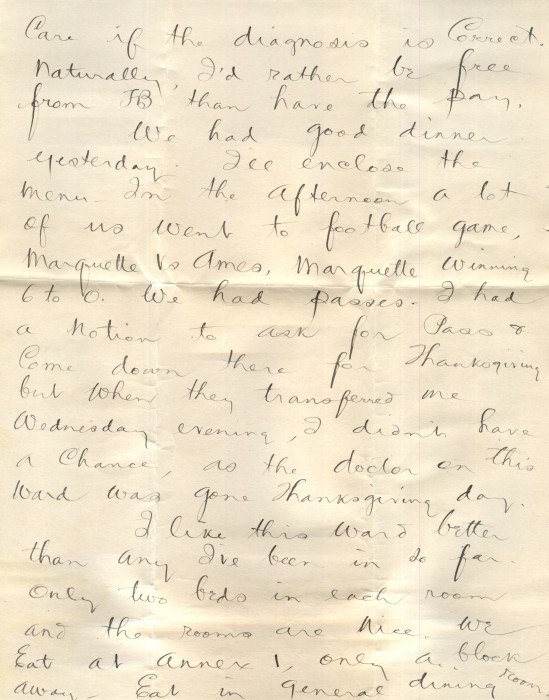 Care if the diagnosis is Correct.
Naturally, I'd rather be free
from TB than have the pay.
We had good dinner
yesterday. I'll enclose the
menu. In the afternoon a lot
of us went to football game,
Marquette Vs Ames, Marquette Winning
6 to 0. We had passes. I had
a notion to ask for Pass &
Come down there for Thanksgiving
but when they transferred me
Wednesday evening, I didn't have
a Chance, as the doctor on this
Ward was gone Thanksgiving day.
I like this Ward better
than any I've been in so far.
Only two beds in each room
and the rooms are Nice. We
Eat at Annex 1, only a block
away. Eat in general dining room.